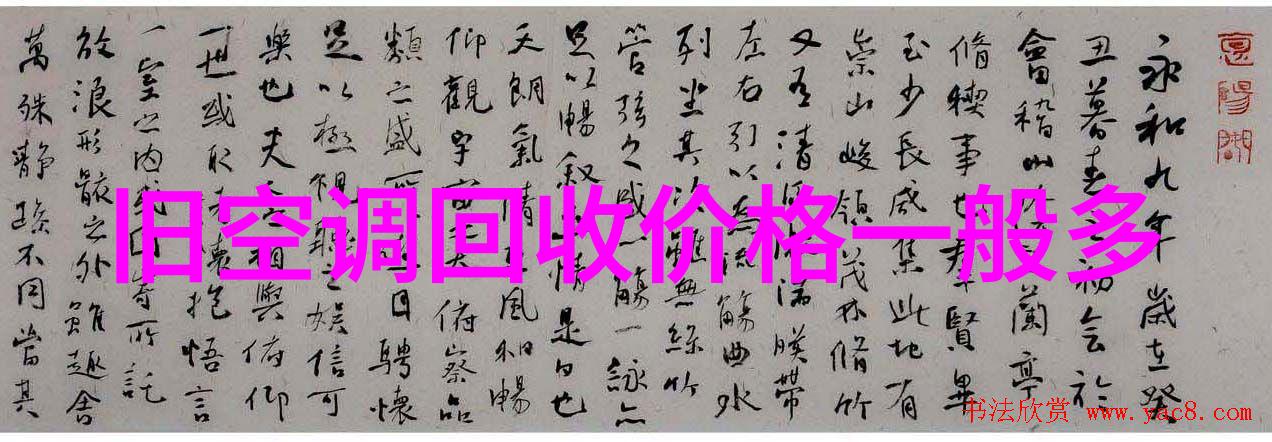 旧空调回收价格一般多
永和九年歲在癸
丑暮春之初会於
會稽山陰之蘭亭
脩稧事也群賢畢
至少長咸集此地有
崇山峻領茂林脩竹
又有清流激湍暎帶
左右引以為流觴曲水
列坐其次雖無絲竹
管弦之盛一觴一詠亦
足以暢叙幽情是日也
天朗氣清惠風和暢
仰觀宇宙之大俯察品
類之盛所以遊目騁懷
足以極視聽之娛信可
樂也夫人之相與俯仰
一世或取諸懷抱悟言
一室之內或因寄所託
放浪形骸之外雖趣舍
萬殊靜躁不同當其
书法欣赏 www.yac8.com